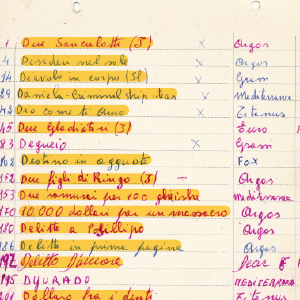 1 Due Sanculotti (S) x Orgos
4 Desideri nel sole x Orgos
14 Diavolo in corpo (Sl) x Gram
29 Daniela - Criminal strip-tease x Mediterranea
42 Dio come ti amo x Titanus
45 Due Gladiatori (S) Euro
83 Deguejo x Gram
102 Destino in agguato Fox
112 Due figli di Ringo (S) - Orgos
153 Due samurai per 100 gheishe Mediterranea
170 10.000 dollari per un massacro Orgos
180 Delitto a Posillipo Orgos
186 Delitto in prima pagina Orgos
192 Delitto d'amore Dear F
195 DJURADO MEDITERRANEA
201 Dollaro fra i denti Titanus